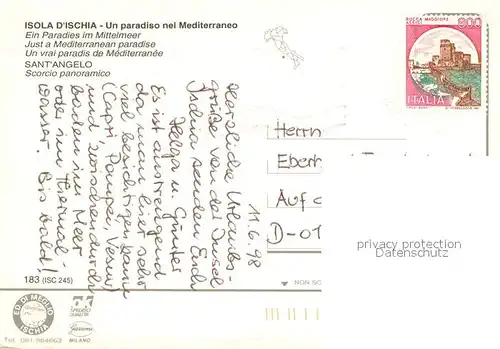 ISOLA D'ISCHIA - Un paradiso nel Mediterraneo
Ein Paradies im Mittelmeer
Just a Mediterranean paradise
Un vrai paradis de Méditerranée
SANT'ANGELO
Scorcio panoramico
ROCCA MAGGIORE
ASSISI
800
ITALIA
11.6.98
Herzliche Urlaubs-
grüße von der Insel
Ischia senden Euch
Helga u. Günter
Es ist anstrengend
da man hier sehr
viel besichtigen kann
(Capri, Pompei, Vesuv)
und zwischendurch
baden im Meer
oder im Thermal-
wasser. Bis bald!
Herrn
Eberh
Auf d
D-01
privacy protection
Datenschutz
183 (ISC 245)
NON SC
ED. DI MEGLIO
ISCHIA
Tel. 081/984663
MILANO